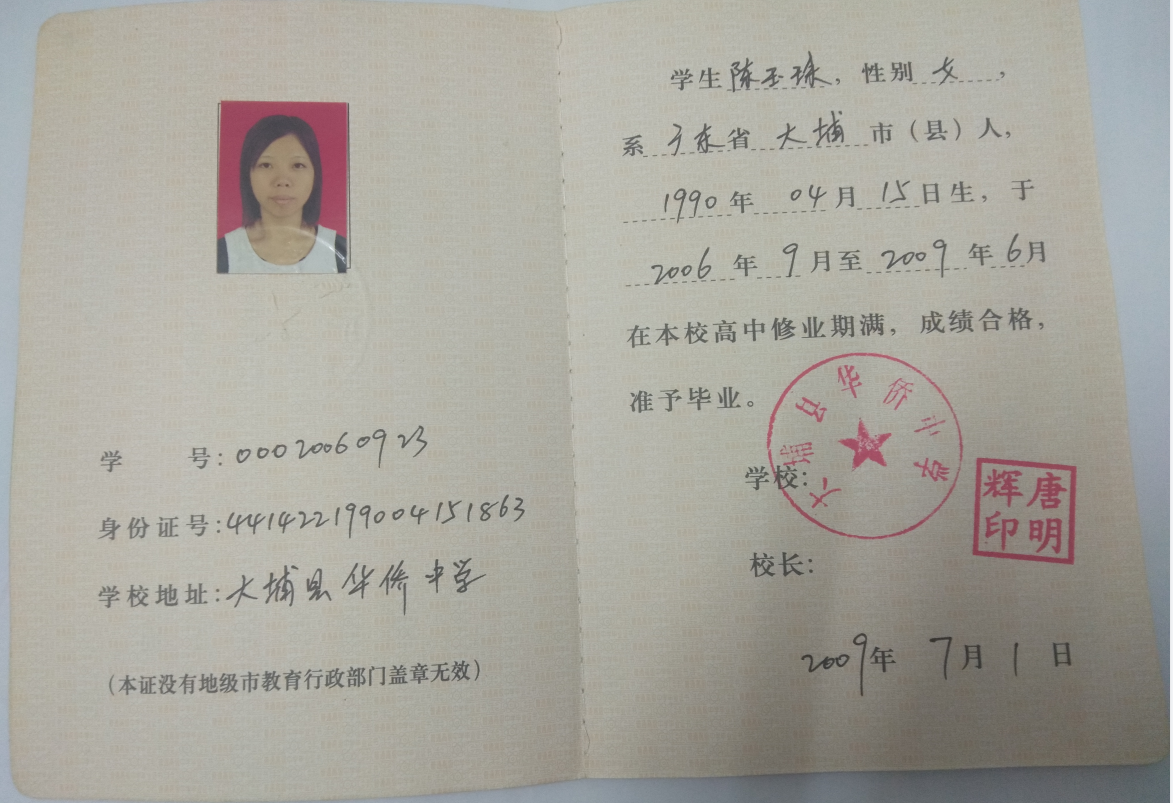 学 号:00020060923
身份证号:441422199004151863
学校地址:大埔县华侨中学
(本证没有地级市教育行政部门盖章无效)
学生陈玉球,性别女,
系广东省大埔市(县)人,
1990年04月15日生,于
2006年9月至2009年6月
在本校高中修业期满,成绩合格,
准予毕业。
大埔县华侨中学
学校:
唐明辉印
校长:
2009年7月1日